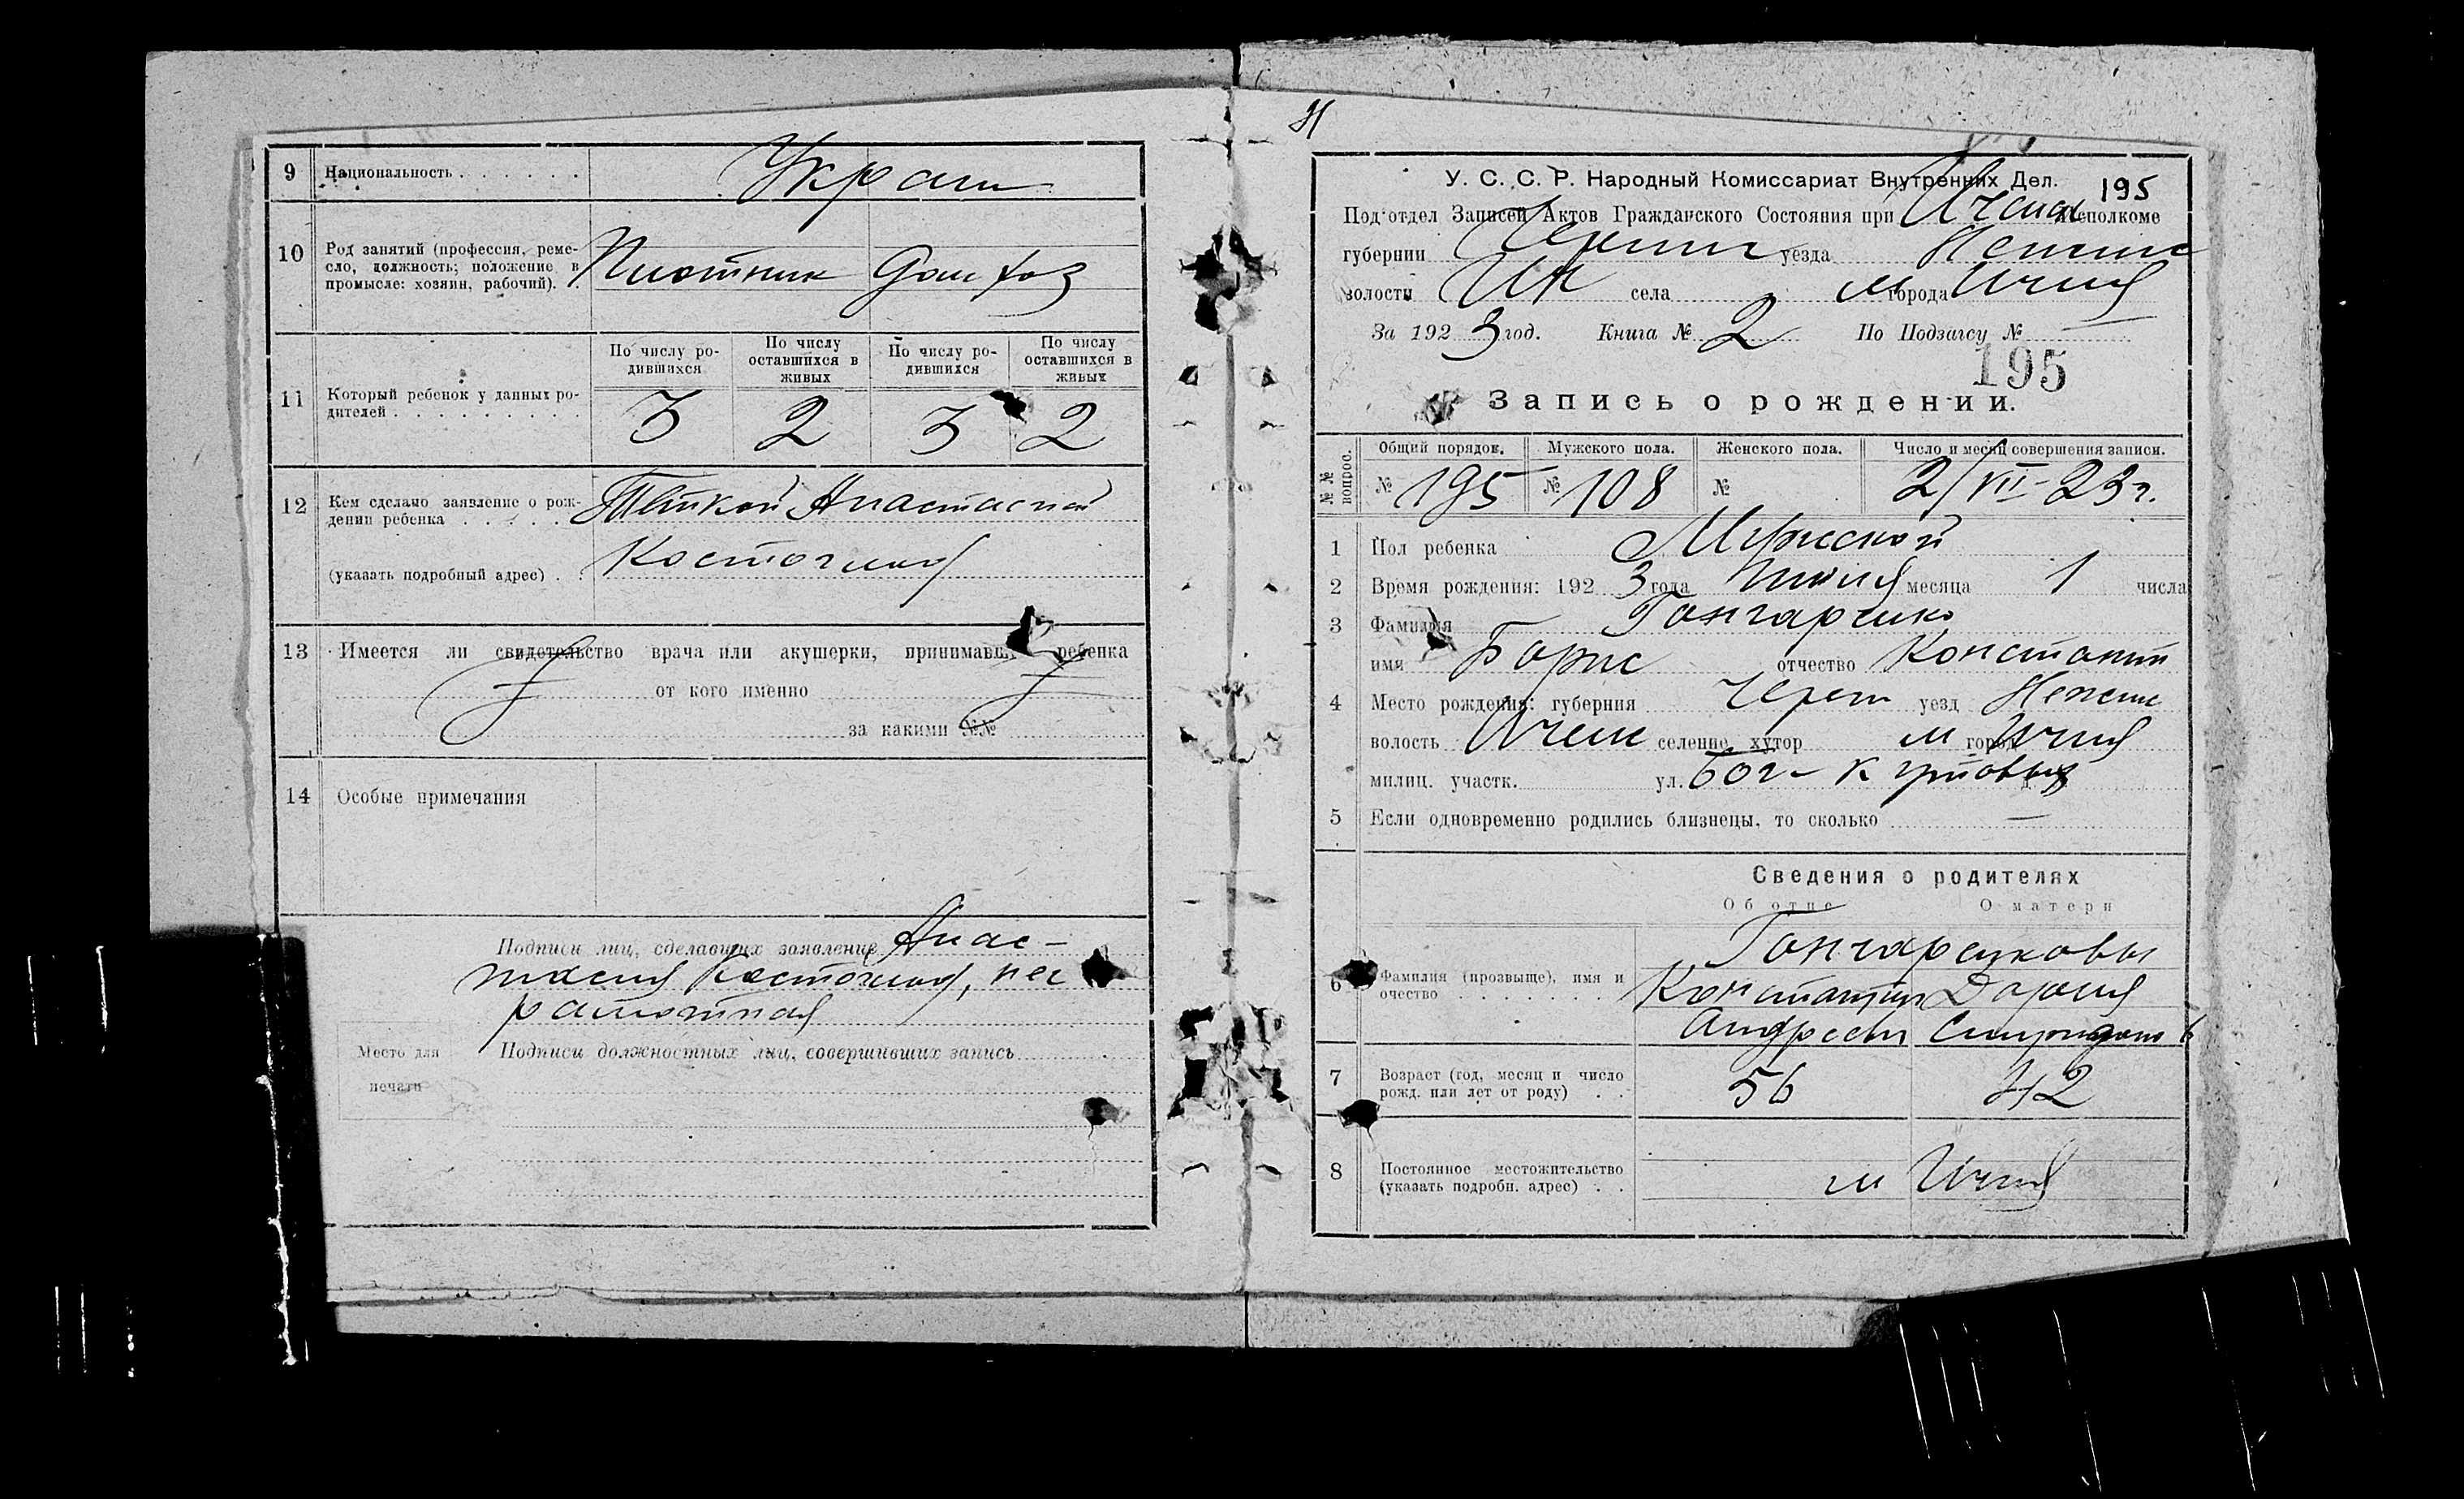 9 Национальность Украин
10 Род занятий (профессия, реме-
сло, должность; положение в
промысле: хозяин, рабочий). Плотник Дом хоз
11 Который ребенок у данных ро-
дителей
По числу ро-
дившихся
По числу
оставшихся в
живых
По числу ро-
дившихся
По числу
оставшихся в
живых
3 2 3 2
12 Кем сделано заявление о рож-
дении ребенка Теткой Анастасией
(указать подробный адрес)
13 Имеется ли свидетельство врача или акушерки, ребенка
от кого именно
за какими №№
14 Особые примечания
Подписи лиц, сделавших заявление Анас-
тасия нег
рамотная
Место для
печати
Подписи должностных лиц, совершивших запись
У. С. С. Р. Народный Комиссариат Внутренних Дел. 195
Подотдел Записей Актов Гражданского Состояния при Ичнян исполкоме
губернии Черниг уезда Нежинс
волости Ич села м города Ичня
За 1923 год. Книга № 2 По Подзагсу №
195
Запись о рождении.
№№ вопрос.
Общий порядок. Мужского пола. Женского пола. Число и месяц совершения записи.
№ 195 № 108 № 2/VII-23г.
1 Пол ребенка Мужской
2 Время рождения: 1923 года июля месяца 1 числа
3 Фамилия Гончаренко
имя Борис отчество Константин
4 Место рождения: губерния Черниг уезд Нежинс
волость Ичнян селение, хутор м город Ичня
милиц. участк. ул.
5 Если одновременно родились близнецы, то сколько —
Сведения о родителях
Об отце О матери
6 Фамилия (прозвыще), имя и
очество
Гончаренковы
Константин Дария
Андреев Спиридонов
7 Возраст (год, месяц и число
рожд. или лет от роду) 56 42
8 Постоянное местожительство
(указать подробн. адрес) м Ичня